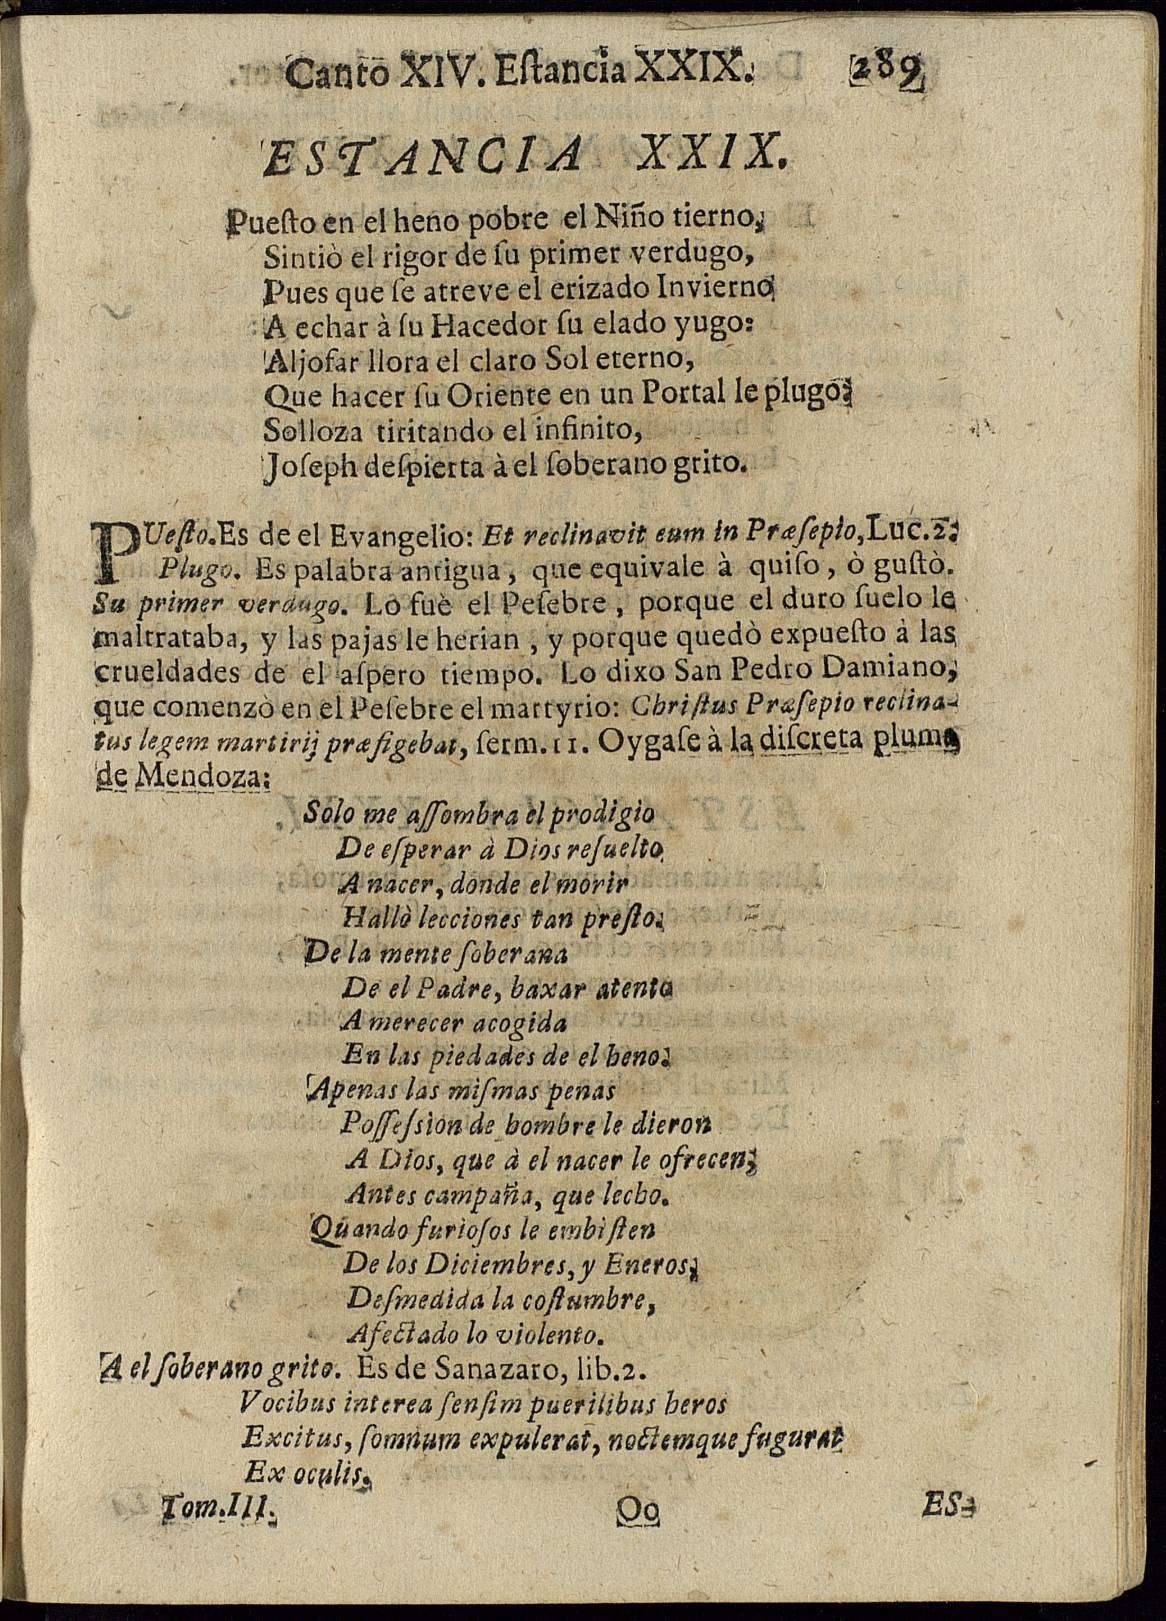 Canto XIV. Eſtancia XXIX. 289
ESTANCIA XXIX.
Pueſto en el heno pobre el Niño tierno,
Sintiò el rigor de ſu primer verdugo,
Pues que ſe atreve el erizado Invierno
A echar à ſu Hacedor ſu elado yugo:
Aljofar llora el claro Sol eterno,
Que hacer ſu Oriente en un Portal le plugo:
Solloza tiritando el infinito,
Joſeph deſpierta à el ſoberano grito.
PUeſto. Es de el Evangelio: Et reclinavit eum in Præſepio, Luc. 2.
Plugo. Es palabra antigua, que equivale à quiſo, ò guſtò.
Su primer verdugo. Lo fuè el Peſebre, porque el duro ſuelo le
maltrataba, y las pajas le herian, y porque quedò expueſto à las
crueldades de el aſpero tiempo. Lo dixo San Pedro Damiano,
que comenzò en el Peſebre el martyrio: Chriſtus Præſepio reclina-
tus legem martirij præfigebat, ſerm. 11. Oygaſe à la diſcreta pluma
de Mendoza:
Solo me aſſombra el prodigio
De eſperar à Dios reſuelto
A nacer, donde el morir
Hallò lecciones tan preſto.
De la mente ſoberana
De el Padre, baxar atento
A merecer acogida
En las piedades de el heno.
Apenas las miſmas penas
Poſſeſsion de hombre le dieron
A Dios, que à el nacer le ofrecen,
Antes campaña, que lecho.
Quando furioſos le embiſten
De los Diciembres, y Eneros,
Deſmedida la coſtumbre,
Afectado lo violento.
A el ſoberano grito. Es de Sanazaro, lib. 2.
Vocibus interea ſenſim puerilibus heros
Excitus, ſomnum expulerat, noctemque fugarat
Ex oculis.
Tom. III. Oo ES-